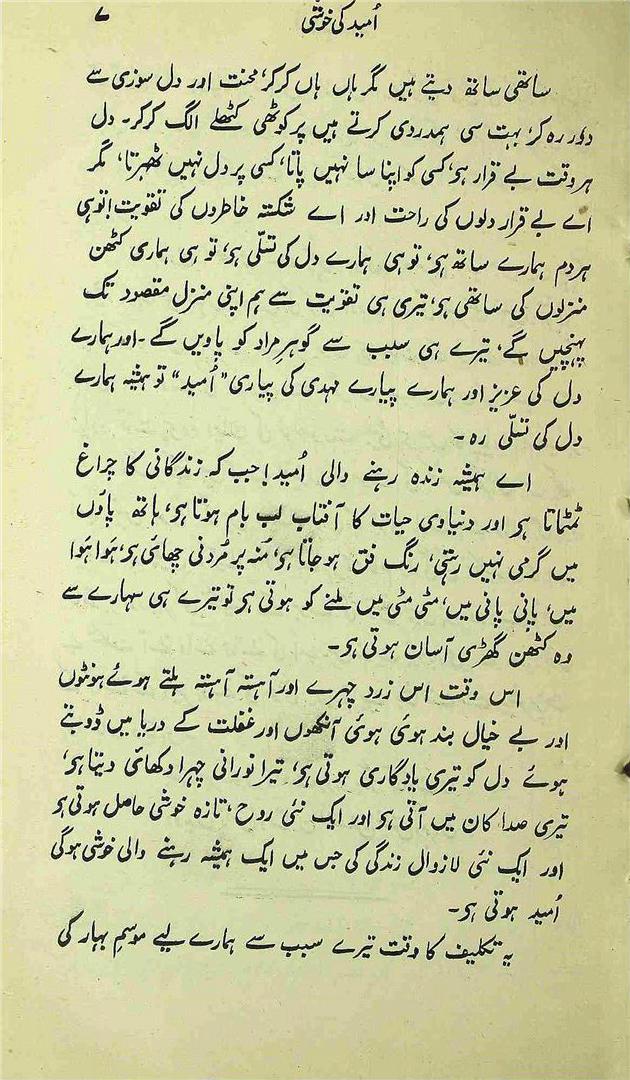 ۷
اُمید کی خوشی
ساتھی ساتھ دیتے ہیں مگر ہاں ہاں کر کر، محنت اور دل سوزی سے
دوُر رہ کر؛ بہت سی ہمدردی کرتے ہیں پر کوٹھی کٹھلے الگ کر کر۔ دل
ہر وقت بے قرار ہو، کسی کو اپنا سا نہیں پاتا، کسی پر دل نہیں ٹھہرتا، مگر
اے بے قرار دلوں کی راحت اور اے شکستہ خاطروں کی تقویت! تو ہی
ہر دم ہمارے ساتھ ہو، تو ہی ہمارے دل کی تسلّی ہو، تو ہی ہماری کٹھن
منزلوں کی ساتھی ہو، تیری ہی تقویت سے ہم اپنی منزل مقصود تک
پہنچیں گے، تیرے ہی سبب سے گوہرِ مراد کو پاویں گے۔ اور ہمارے
دل کی عزیز اور ہمارے پیارے مہدی کی پیاری "اُمید" تو ہمیشہ ہمارے
دل کی تسلّی رہ۔
اے ہمیشہ زندہ رہنے والی اُمید! جب کہ زندگانی کا چراغ
ٹمٹماتا ہو اور دنیاوی حیات کا آفتاب لب بام ہوتا ہو، ہاتھ پاؤں
میں گرمی نہیں رہتی، رنگ فق ہو جاتا ہو، مُنہ پر مُردنی چھائی ہو، ہَوا ہَوا
میں، پانی پانی میں، مٹی مٹی میں ملنے کو ہوتی ہو تو تیرے ہی سہارے سے
وہ کٹھن گھڑی آسان ہوتی ہو۔
اس وقت اس زرد چہرے اور آہستہ آہستہ ہلتے ہوئے ہونٹوں
اور بے خیال بند ہوئی ہوئی آنکھوں اور غفلت کے دریا میں ڈوبتے
ہوئے دل کو تیری یادگاری ہوتی ہو، تیرا نورانی چہرا دکھائی دیتا ہو،
تیری صدا کان میں آتی ہو اور ایک نئی روح، تازہ خوشی حاصل ہوتی ہو
اور ایک نئی لازوال زندگی کی جس میں ایک ہمیشہ رہنے والی خوشی ہوگی
اُمید ہوتی ہو۔
یہ تکلیف کا وقت تیرے سبب سے ہمارے لیے موسمِ بہار کی